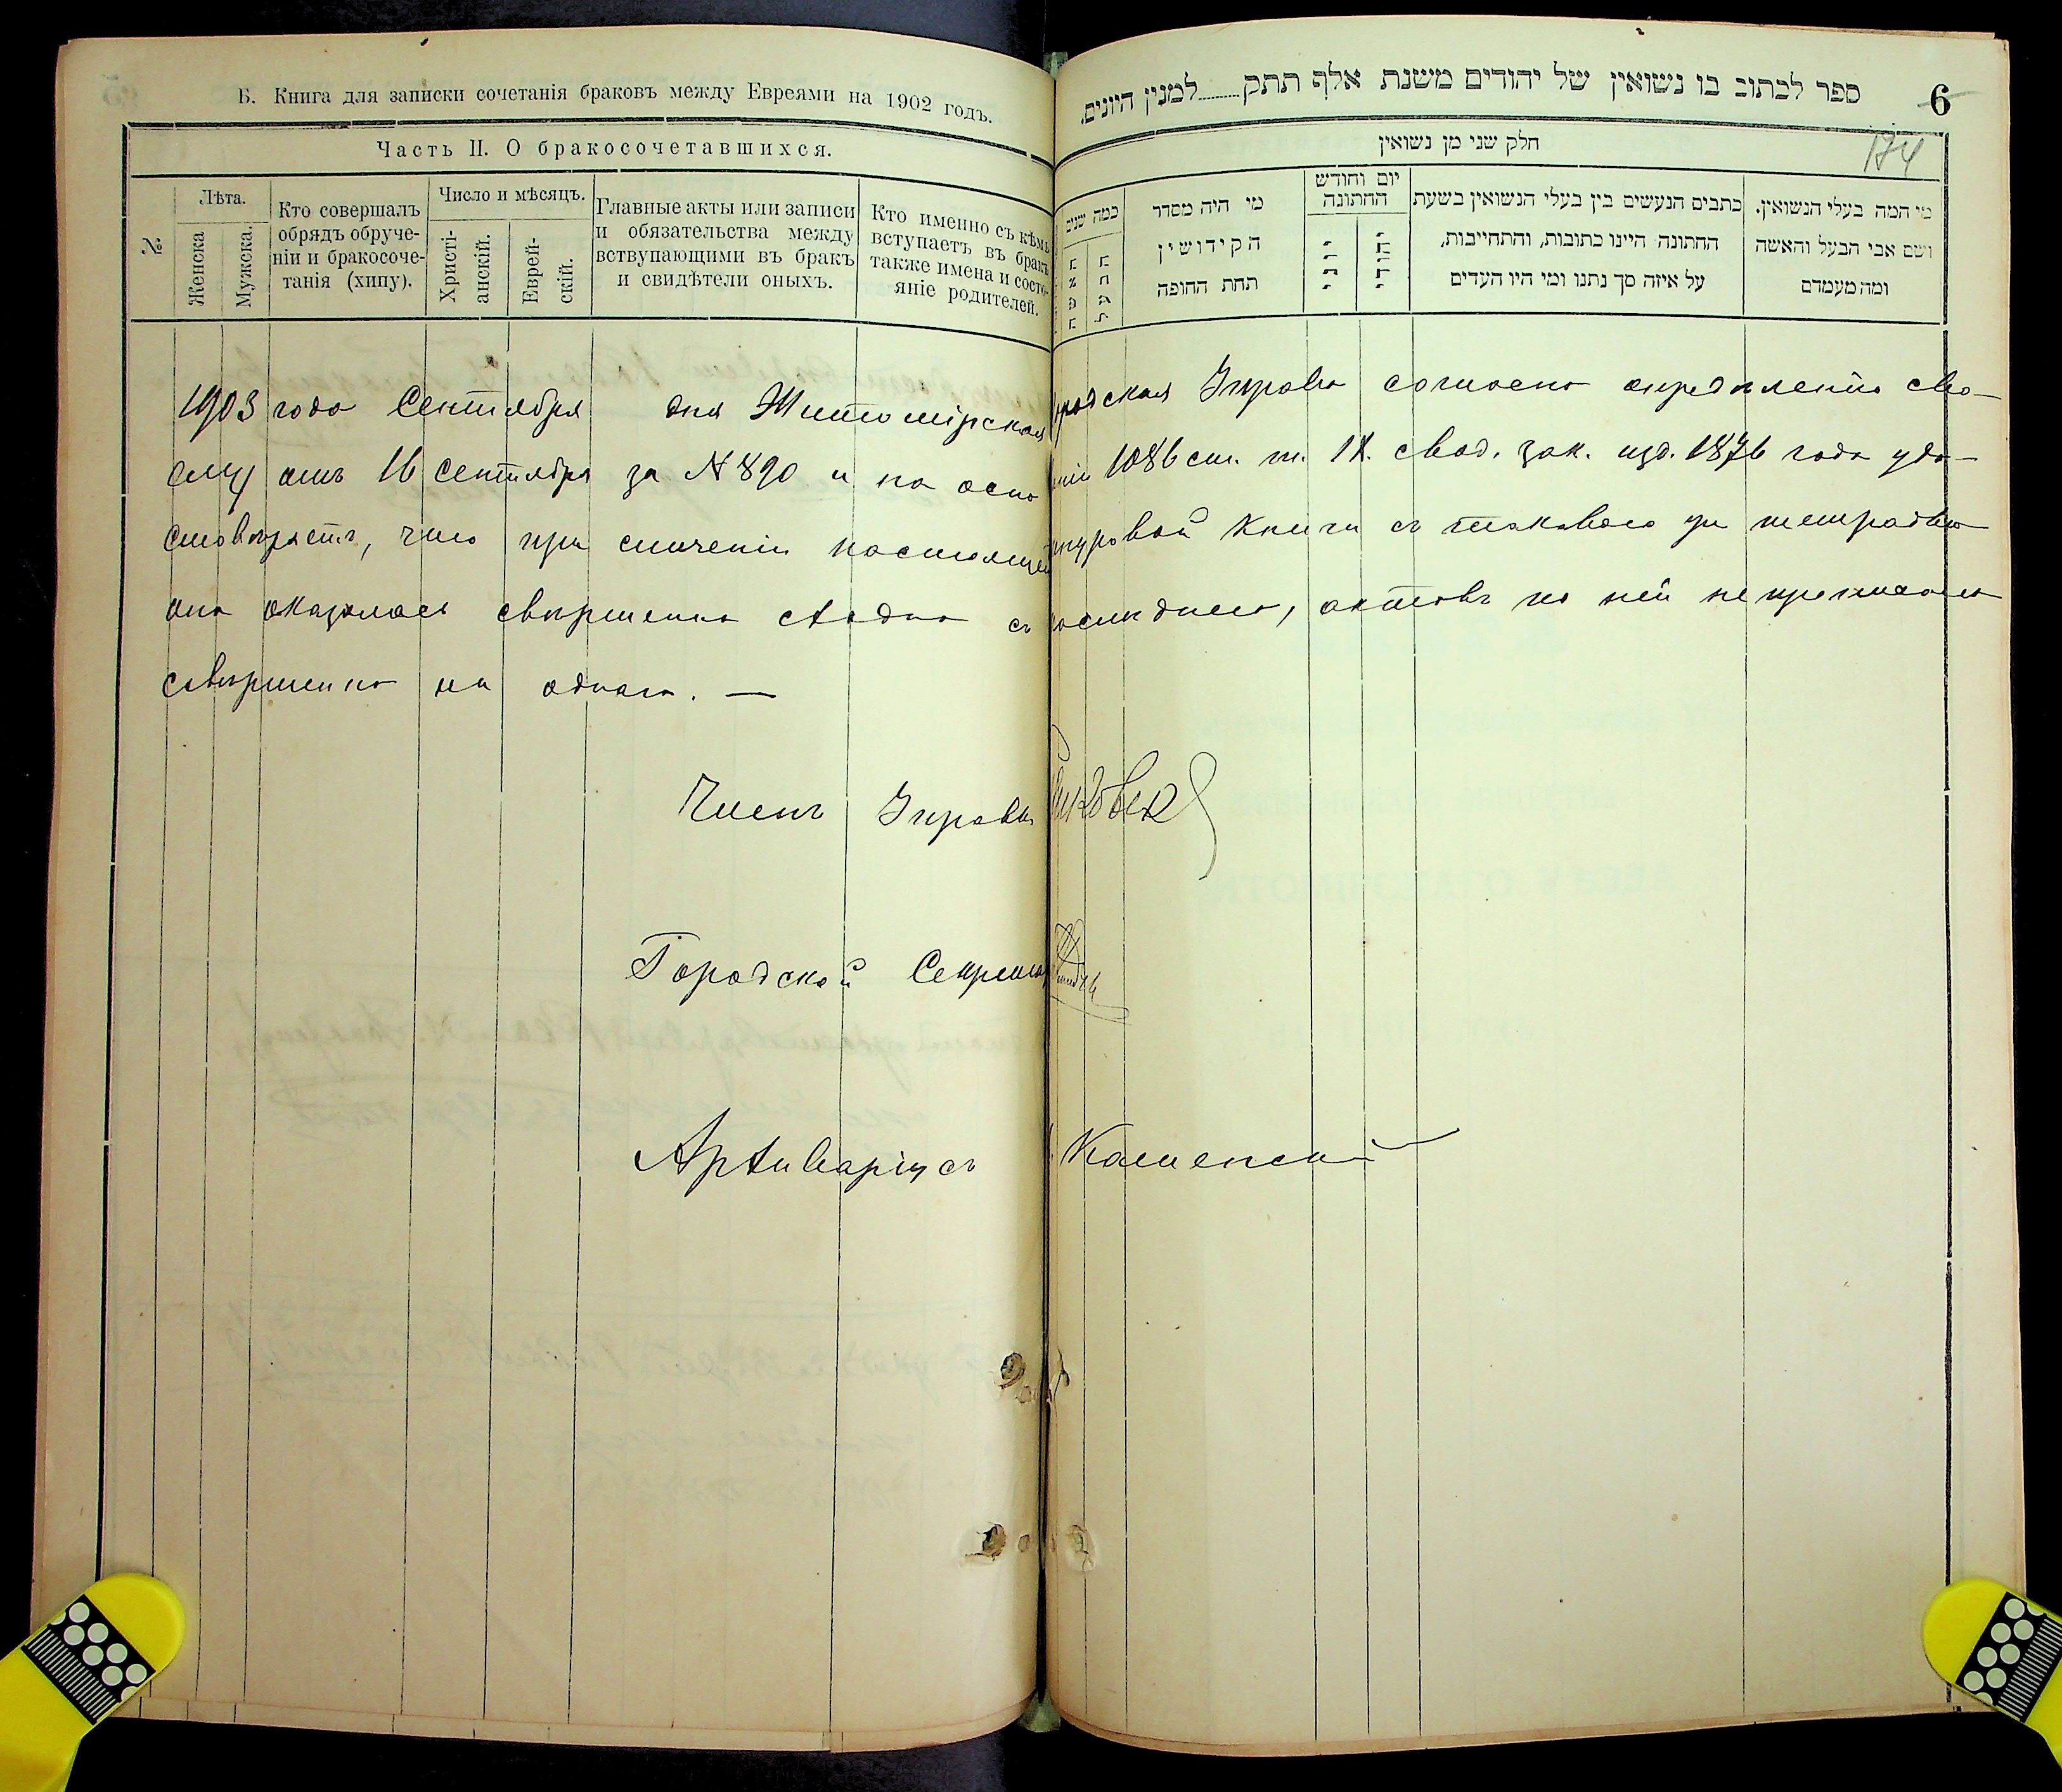 Б. Книга для записки сочетанія браковъ между Евреями на 1902 годъ.
Часть II. О бракосочетавшихся.
№
Лѣта.
Женска
Мужска.
Кто совершалъ
обрядъ обруче-
ніи и бракосоче-
танія (хипу).
Число и мѣсяцъ.
Христі-
анскій.
Еврей-
скій.
Главные акты или записи
и обязательства между
вступающими въ бракъ
и свидѣтели оныхъ.
Кто именно съ кѣмъ
вступаетъ въ бракъ
также имена и состо-
яніе родителей.
ספר לכתוב בו נשואין של יהודים משנת אלף תתק........למנין היונים.
6
174
חלק שני מן נשואין
מי המה בעלי הנשואין.
ושם אבי הבעל והאשה
ומה מעמדם
כתבים הנעשים בין בעלי הנשואין בשעת
החתונה היינו כתובות, והתחייבות,
על איזה סך נתנו ומי היו העדים
יום וחודש
החתונה
יהודי
יוני
מי היה מסדר
הקידושין
תחת החופה
כמה שנים
הבעל
האשה
1903 года Сентября дня Житомірская городская Управа согласно опредѣленію сво-
ему отъ 16 сентября за N 890 и на осно 1086 ст. т. IX. свод. зак. изд. 1876 года удо-
стовѣряетъ, что при сличеніи настоящей шнуровой книги съ таковою же тетрадью
она оказалась совершенно сходна съ послѣднею, актовъ по ней не
совершенно ни одного. —
Членъ Управы
Городской Секретарь
Архиваріусъ Каменскій